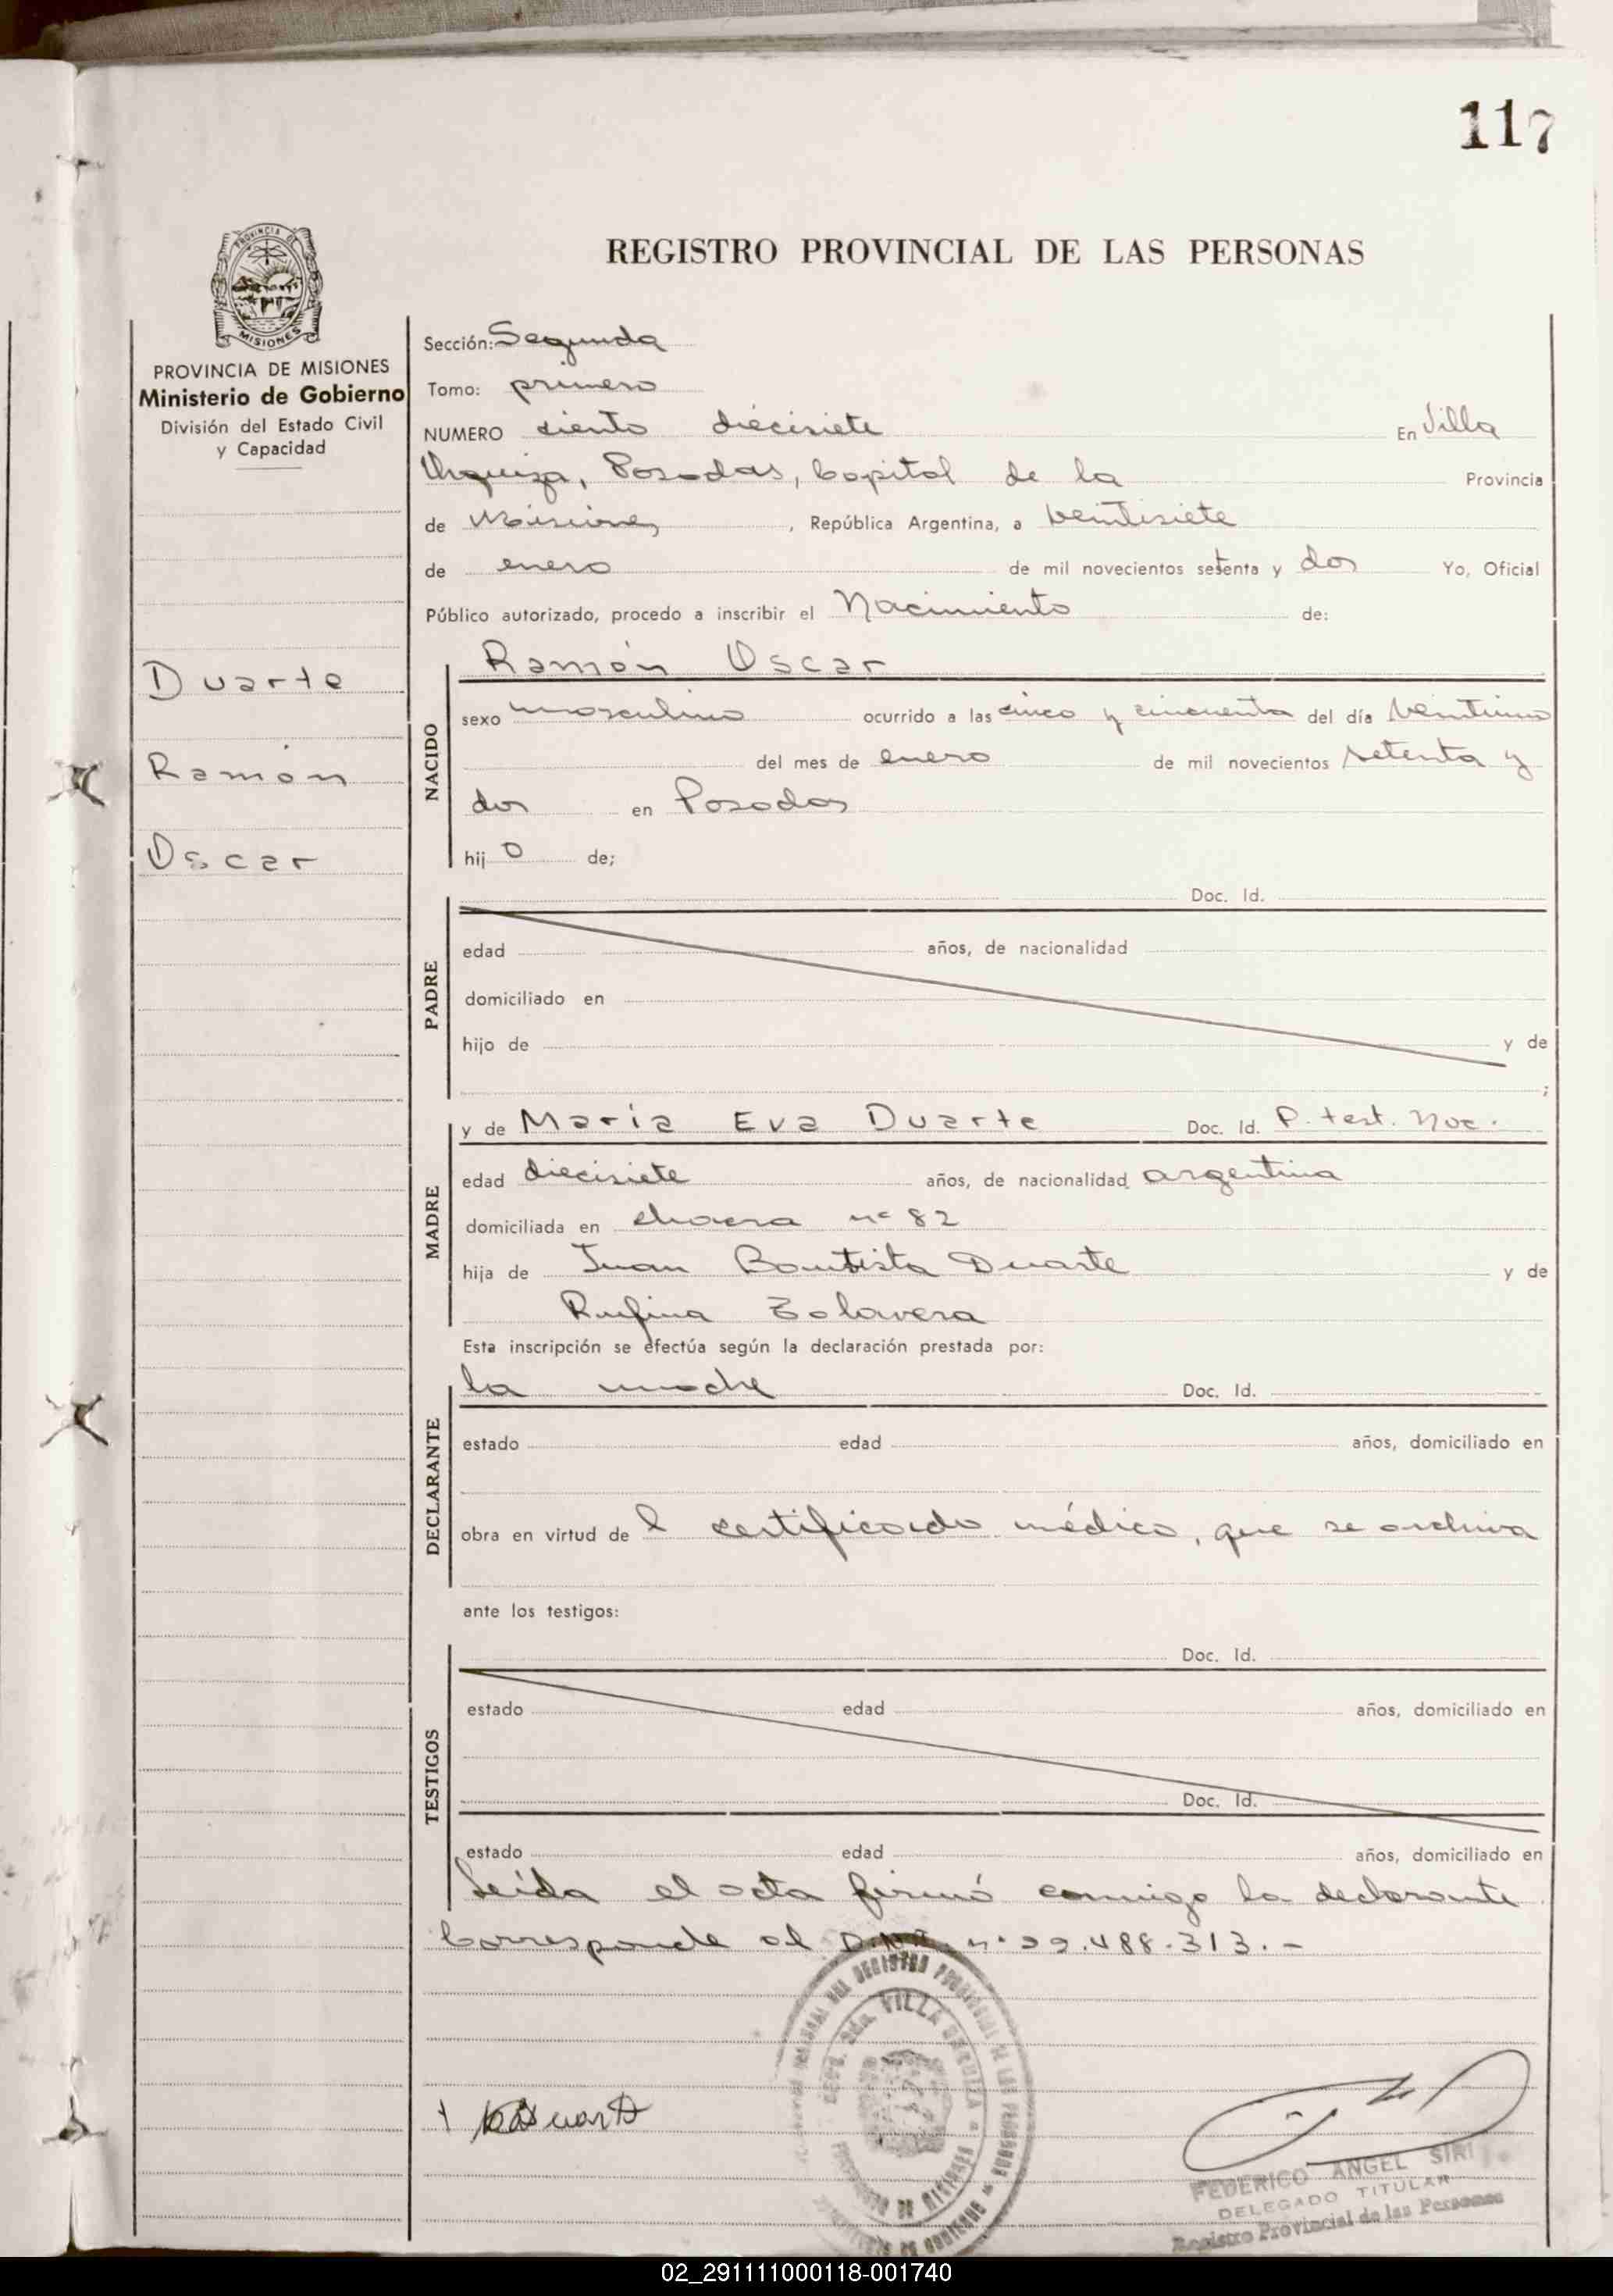 117
REGISTRO PROVINCIAL DE LAS PERSONAS
PROVINCIA DE MISIONES
MISIONES
PROVINCIA DE MISIONES
Ministerio de Gobierno
División del Estado Civil
y Capacidad
Duarte
Ramón
Oscar
Sección: Segunda
Tomo: primero
NUMERO ciento diecisiete En Villa
Urquiza, Posadas, Capital de la Provincia
de Misiones, República Argentina, a veintisiete
de enero de mil novecientos setenta y dos Yo, Oficial
Público autorizado, procedo a inscribir el Nacimiento de:
NACIDO
Ramón Oscar
sexo masculino ocurrido a las cinco y cincuenta del día veintiuno
del mes de enero de mil novecientos setenta y
dos en Posadas
hij o de;
PADRE
Doc. Id.
edad años, de nacionalidad
domiciliado en
hijo de y de
;
MADRE
y de María Eva Duarte Doc. Id. P. test. Nac.
edad diecisiete años, de nacionalidad argentina
domiciliada en chacra nº 82
hija de Juan Bautista Duarte y de
Rufina
Esta inscripción se efectúa según la declaración prestada por:
DECLARANTE
la madre Doc. Id.
estado edad años, domiciliado en
obra en virtud de l certificado médico, que se archiva
ante los testigos:
TESTIGOS
Doc. Id.
estado edad años, domiciliado en
Doc. Id.
estado edad años, domiciliado en
Leída el acta firmó conmigo la declarante
Corresponde al n° .488.313.-
VILLA URQUIZA
FEDERICO ANGEL SIRI
DELEGADO TITULAR
Registro Provincial de las Personas
02_291111000118-001740